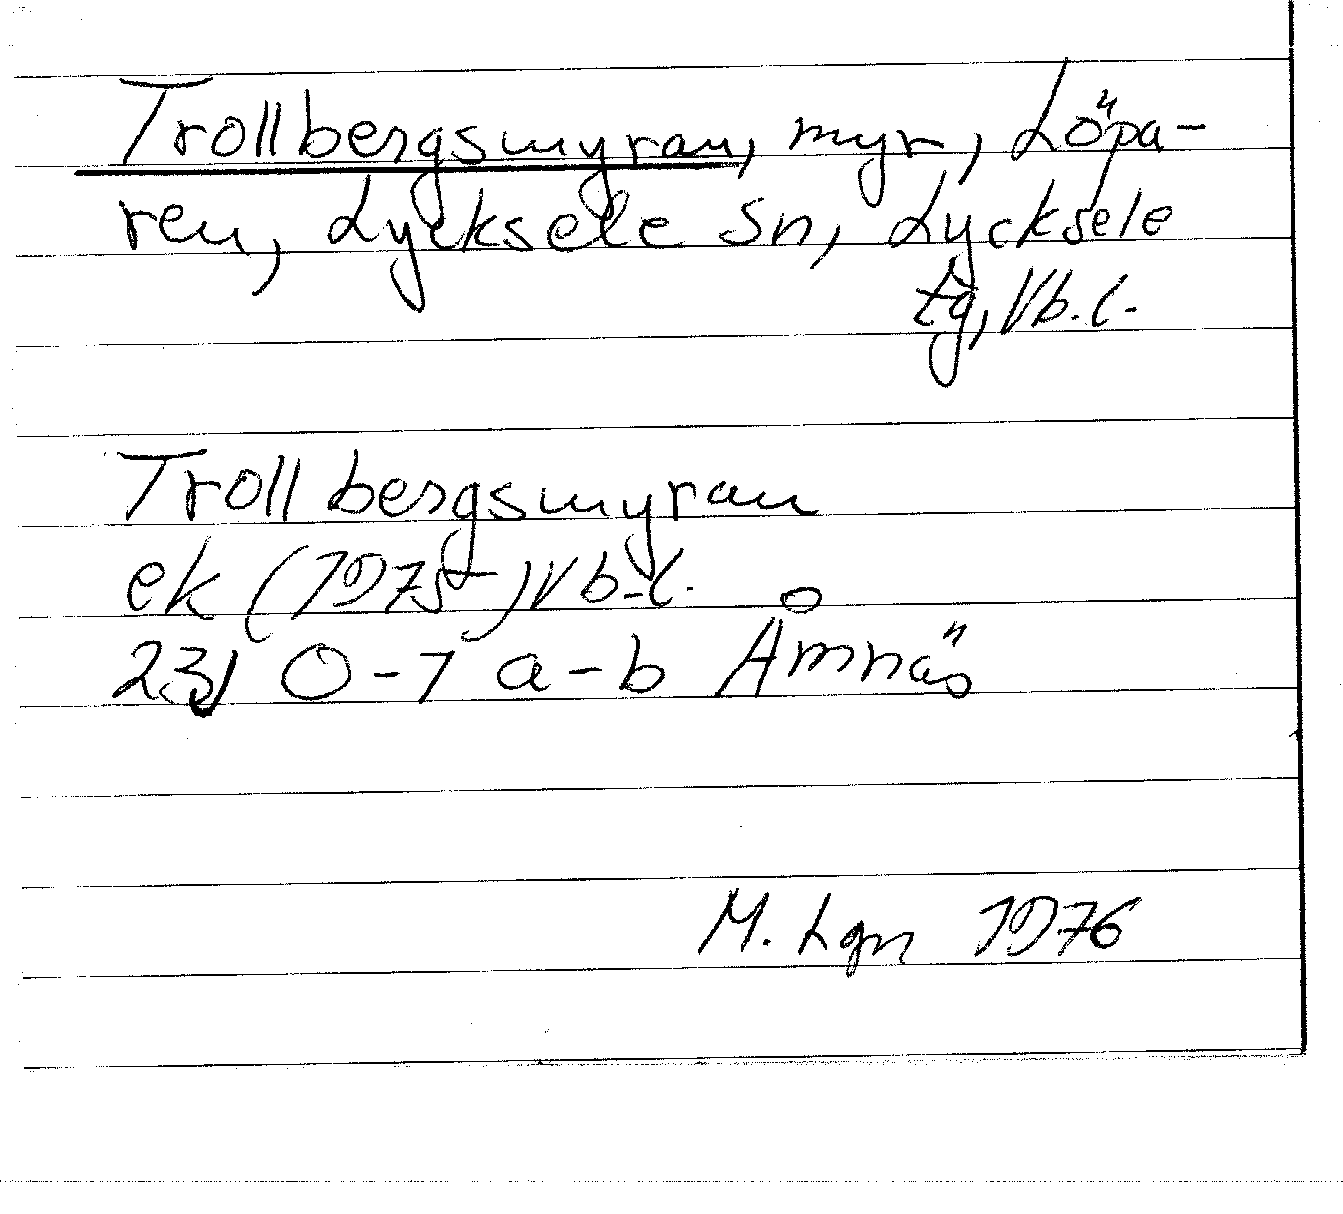 Trollbergsmyran, myr, Löpa-
ren, Lycksele sn, Lycksele
tg, Vb. l.
Trollbergsmyran
ek (1975) Vb. l.
23J 0-1 a-b Åmnäs
M. Lgn 1976